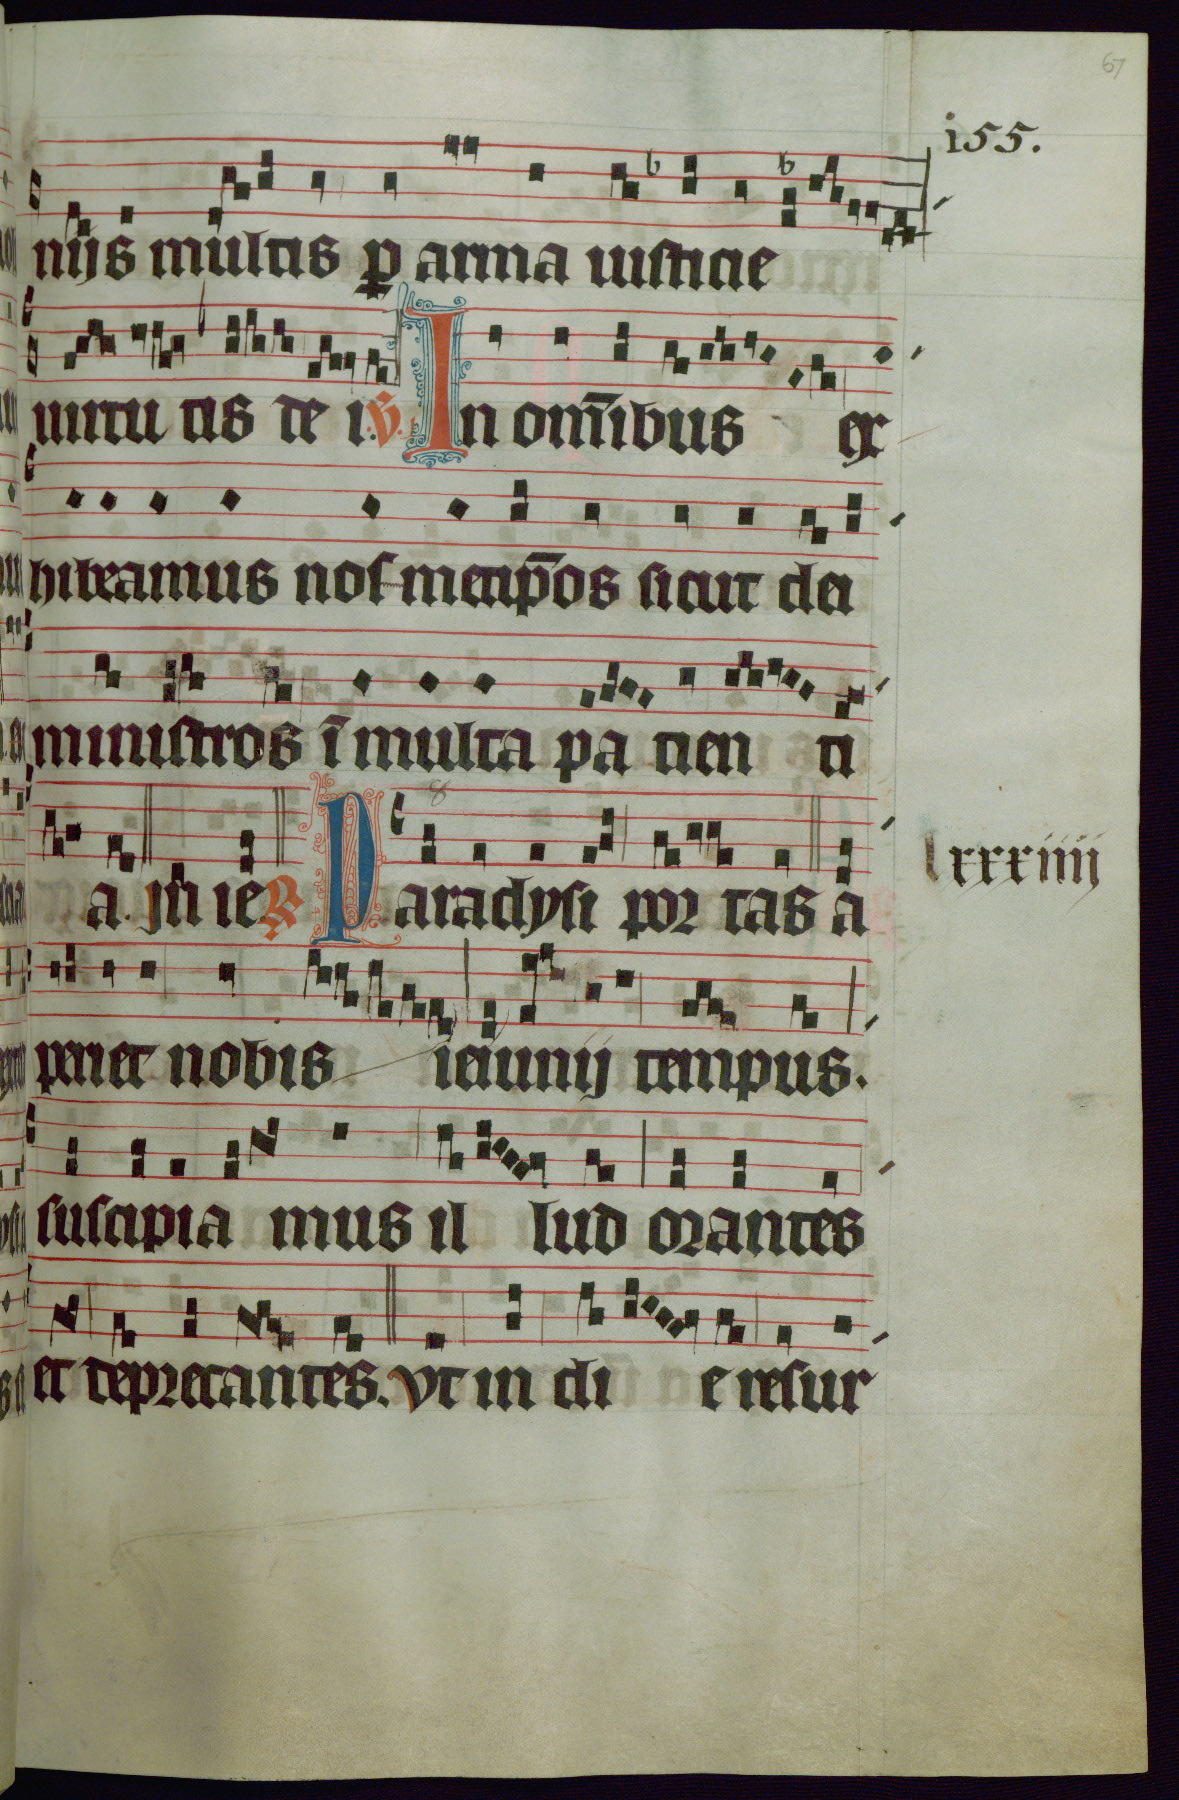 67
i55.
nijs multis ꝑ arma iusticie
uirtu tis de i. ℣. In om̅ibus ex
hibeamus nosmetip̅os sicut dei
ministros ı̅ multa pa cien ti
8
a. Jn ieR Paradysi por tas a
lxxxiiij
periet nobis ieiunij tempus.
suscipia mus il lud orantes
et deprecantes. Vt in di e resur